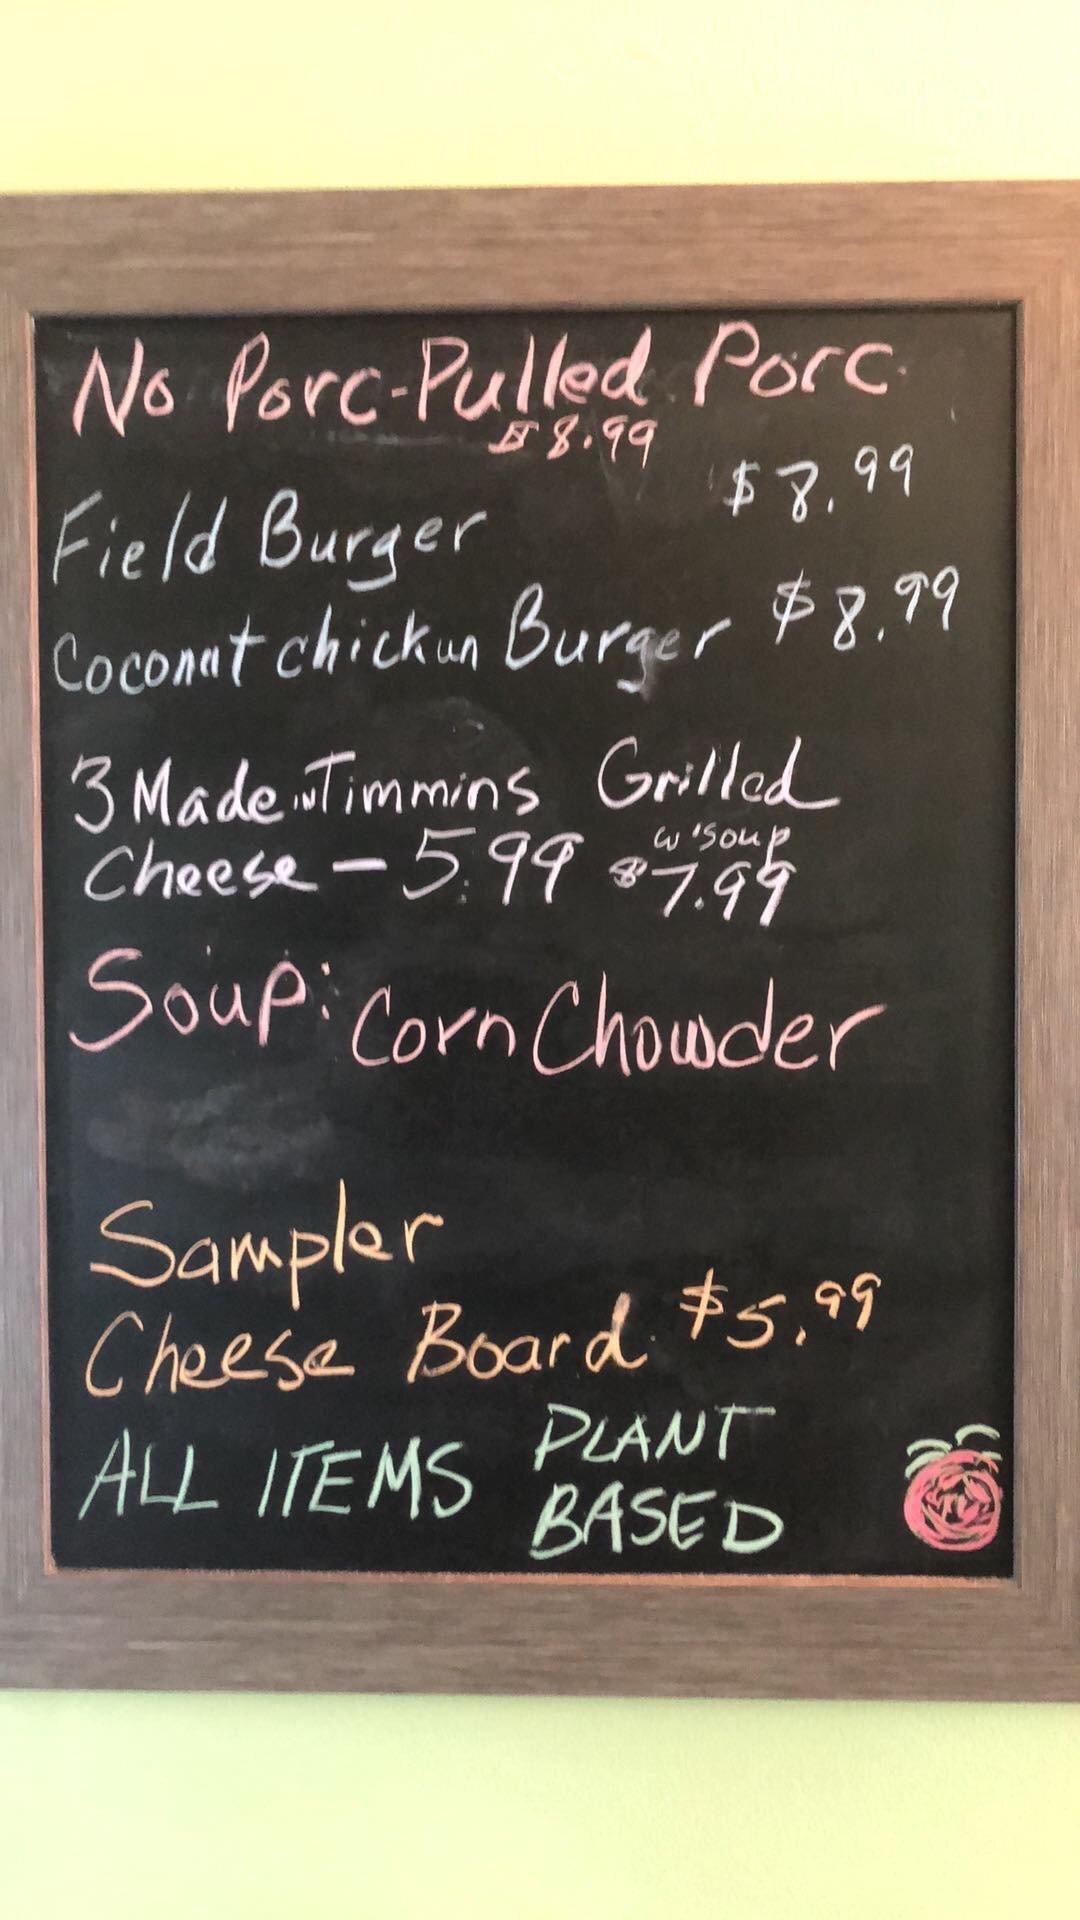 No Porc-Pulled Porc
$8.99
Field Burger $8.99
Coconut chickun Burger $8.99
3 Made in Timmins Grilled
Cheese - 5.99 w'soup $7.99
Soup: Corn Chowder
Sampler
Cheese Board $5.99
ALL ITEMS PLANT
BASED